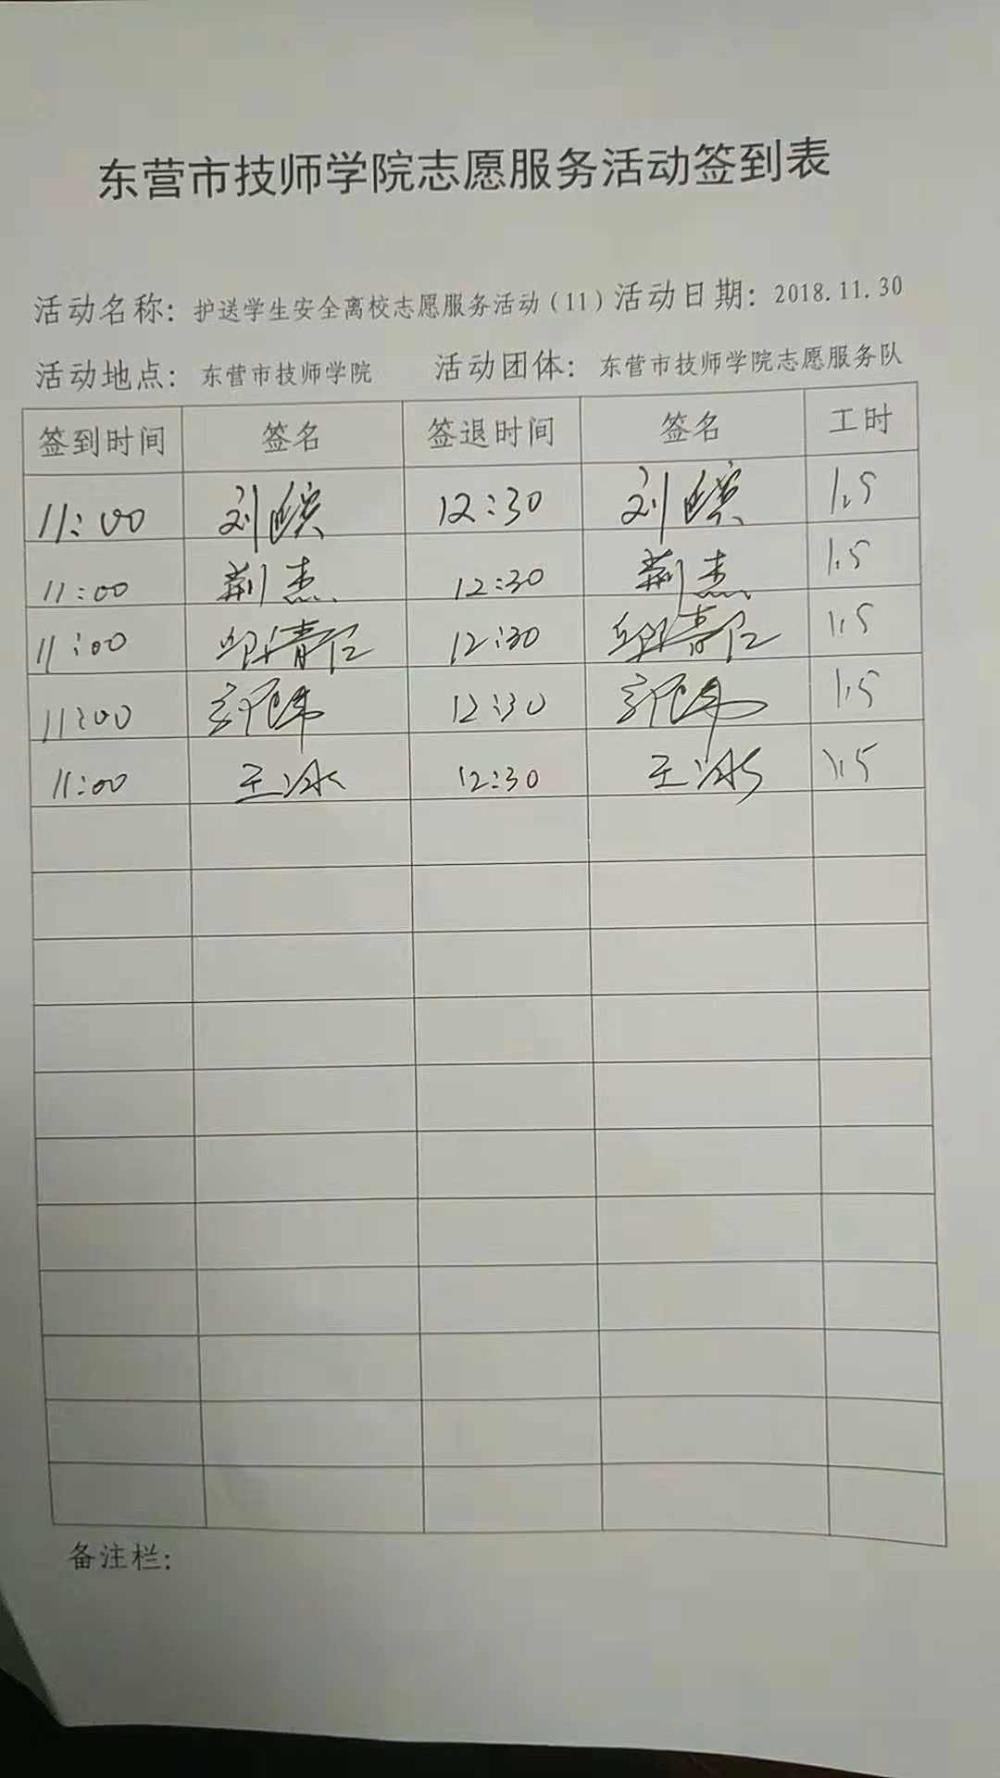 东营市技师学院志愿服务活动签到表
活动名称：护送学生安全离校志愿服务活动（11）活动日期：2018.11.30
活动地点：东营市技师学院 活动团体：东营市技师学院志愿服务队
签到时间 签名 签退时间 签名 工时
11:00 刘 12:30 刘 1.5
11:00 荆杰 12:30 荆杰 1.5
11:00 12:30 1.5
11:00 12:30 1.5
11:00 王冰 12:30 王冰 1.5
备注栏：